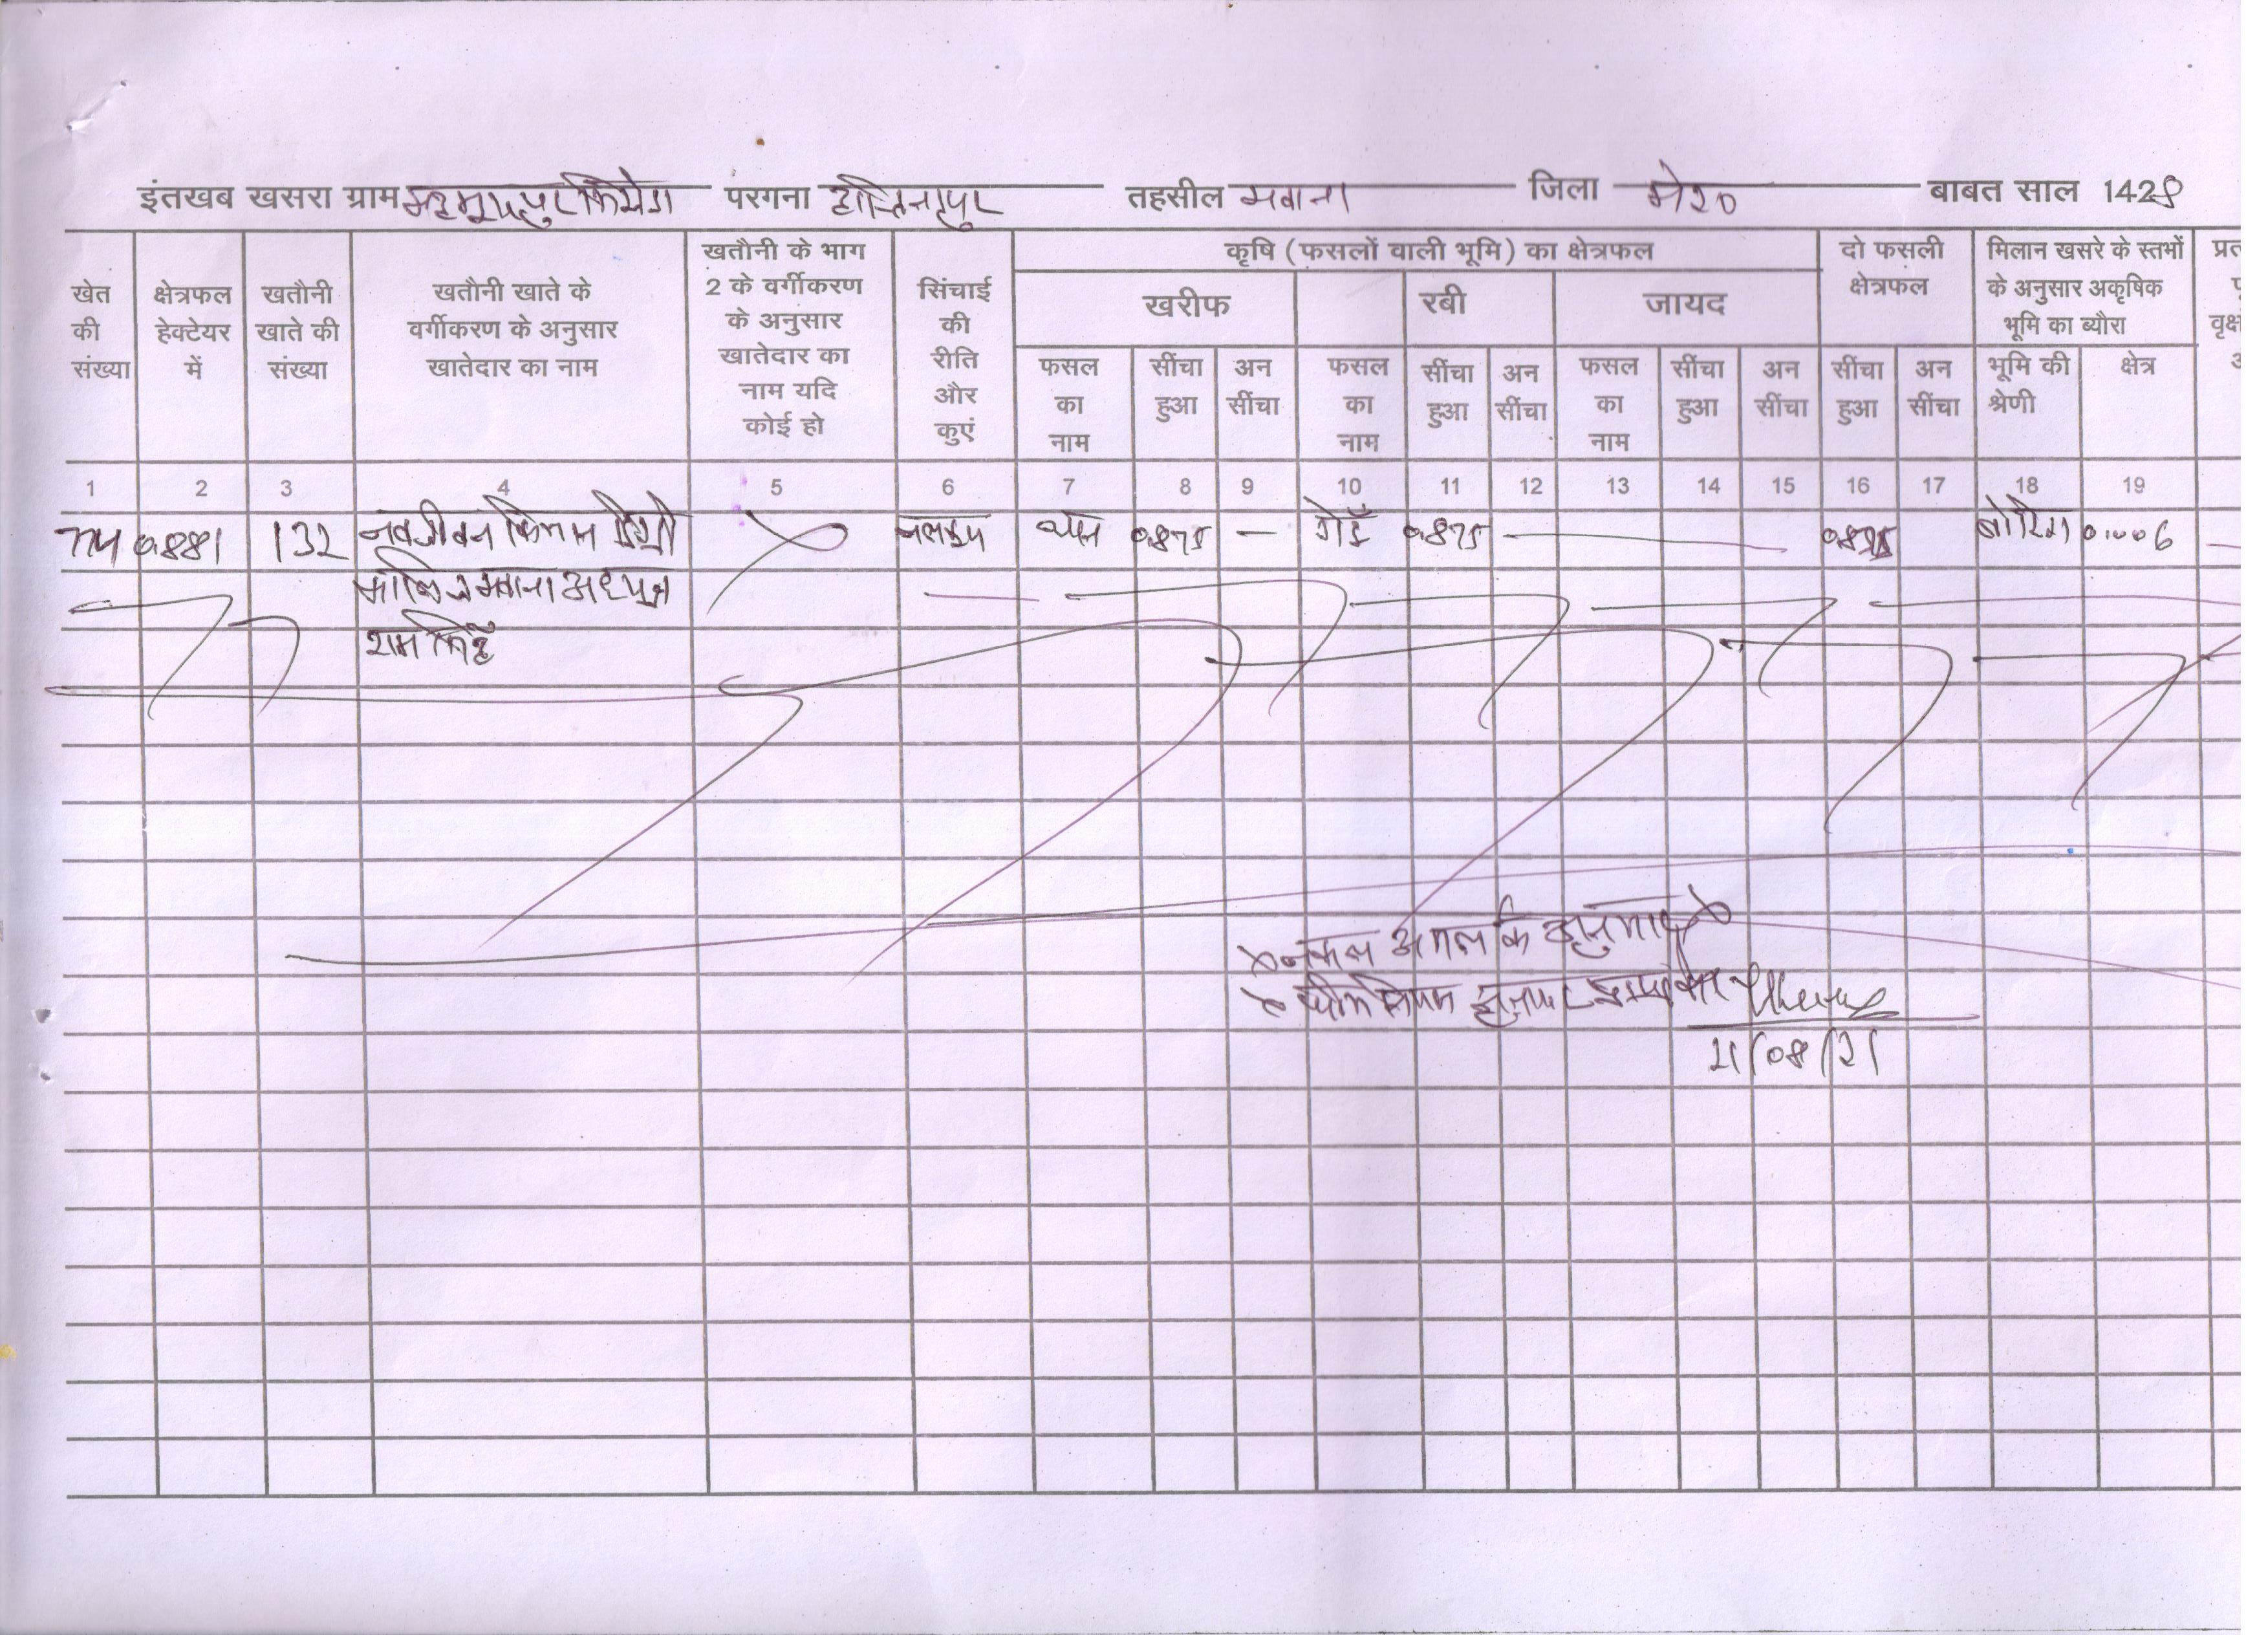 इंतखब खसरा ग्राम महमूदपुर सिखेडा परगना हस्तिनापुर तहसील मवाना जिला मेरठ बाबत साल 1428
खेत की संख्या क्षेत्रफल हेक्टेयर में खतौनी खाते की संख्या खतौनी खाते के वर्गीकरण के अनुसार खातेदार का नाम खतौनी के भाग 2 के वर्गीकरण के अनुसार खातेदार का नाम यदि कोई हो सिंचाई की रीति और कुएं कृषि (फसलों वाली भूमि) का क्षेत्रफल दो फसली क्षेत्रफल मिलान खसरे के स्तभों के अनुसार अकृषिक भूमि का ब्यौरा
खरीफ रबी जायद
फसल का नाम सींचा हुआ अन सींचा फसल का नाम सींचा हुआ अन सींचा फसल का नाम सींचा हुआ अन सींचा सींचा हुआ अन सींचा भूमि की श्रेणी क्षेत्र
1 2 3 4 5 6 7 8 9 10 11 12 13 14 15 16 17 18 19
0.881 132 नवजीवन किसान डिग्री नलकूप धान 0.875 — गेहूँ 0.875 — 0.875 बोरिंग 0.006
कालिज मवाना
राम सिंह
नकल
21/08/21